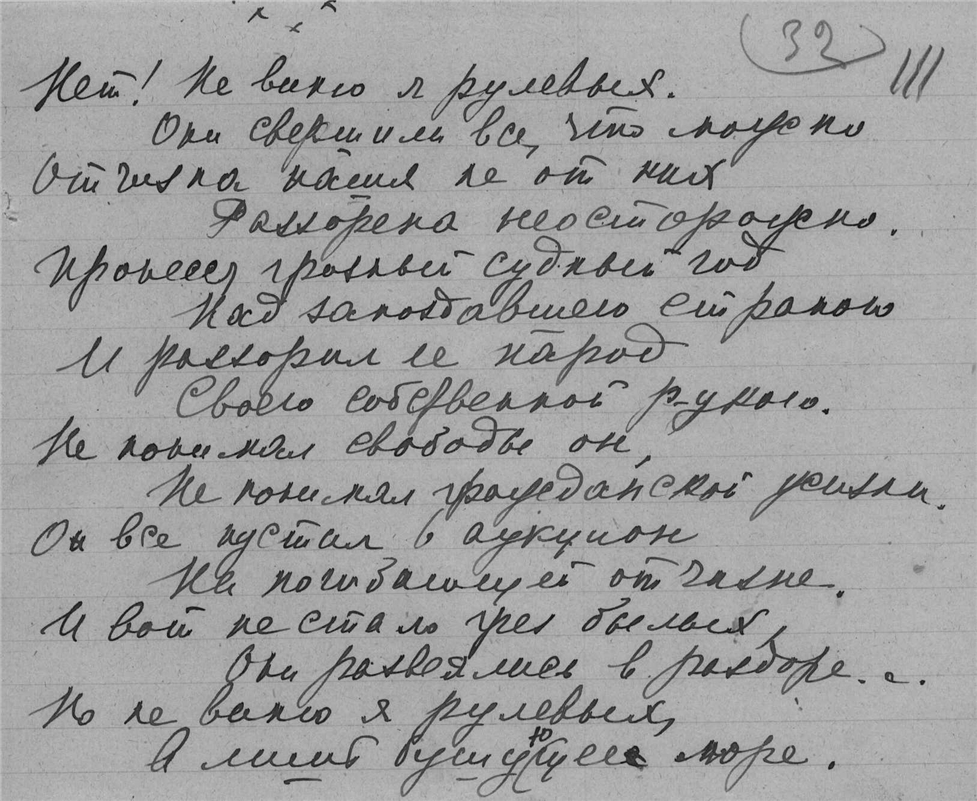 32
III
Нет! Не виню я рулевых.
Они свершили все, что можно
Отчизна наша не от них
Разорена неосторожно.
Пронесся грозный судный год
Над запоздавшею страною
И разорил ее народ
Своею собственной рукою.
Не понимал свободы он,
Не понимал гражданской жизни.
Он все пустил в аукцион
На погибающей отчизне.
И вот не стало грез былых,
Они развеялись в раздоре...
Но не виню я рулевых,
А лишь бушующее море.